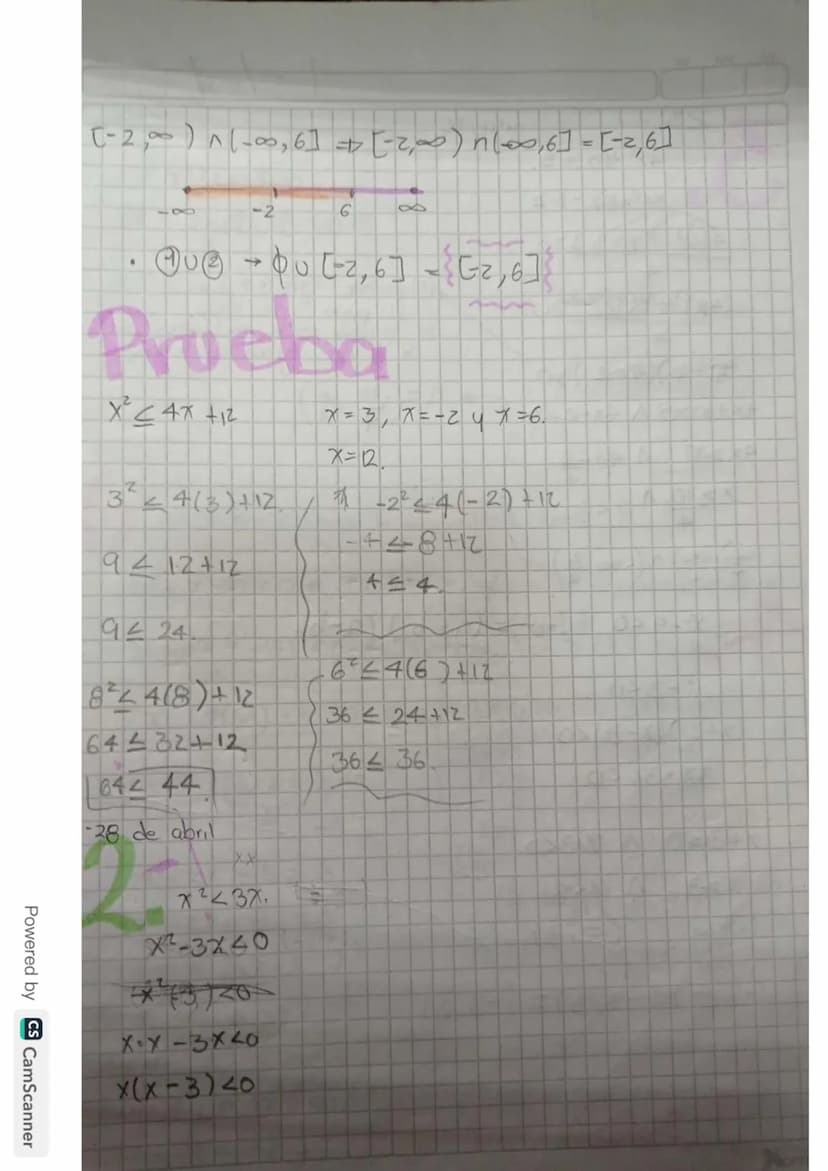 [-2,∞) ∩ (-∞,6] ⇒ [-2,∞) ∩ (-∞,6] = [-2,6]
-∞ -2 6 ∞
· ① ∪ ② → ϕ ∪ [-2,6] = {[-2,6]}
Prueba
x² ≤ 4x +12
x=3, x=-2 y x=6.
x=12.
3² ≤ 4(3)+12
9 ≤ 12+12
9 ≤ 24.
-2² ≤ 4(-2)+12
-4 ≤ 8+12
4 ≤ 4
8² ≤ 4(8)+12
64 ≤ 32+12
64 ≤ 44.
6² ≤ 4(6)+12
36 ≤ 24+12
36 ≤ 36.
-28 de abril
xx
2.-
x²<3x. =
x²-3x<0
x·x -3x<0
x(x-3)<0
Powered by CS CamScanner